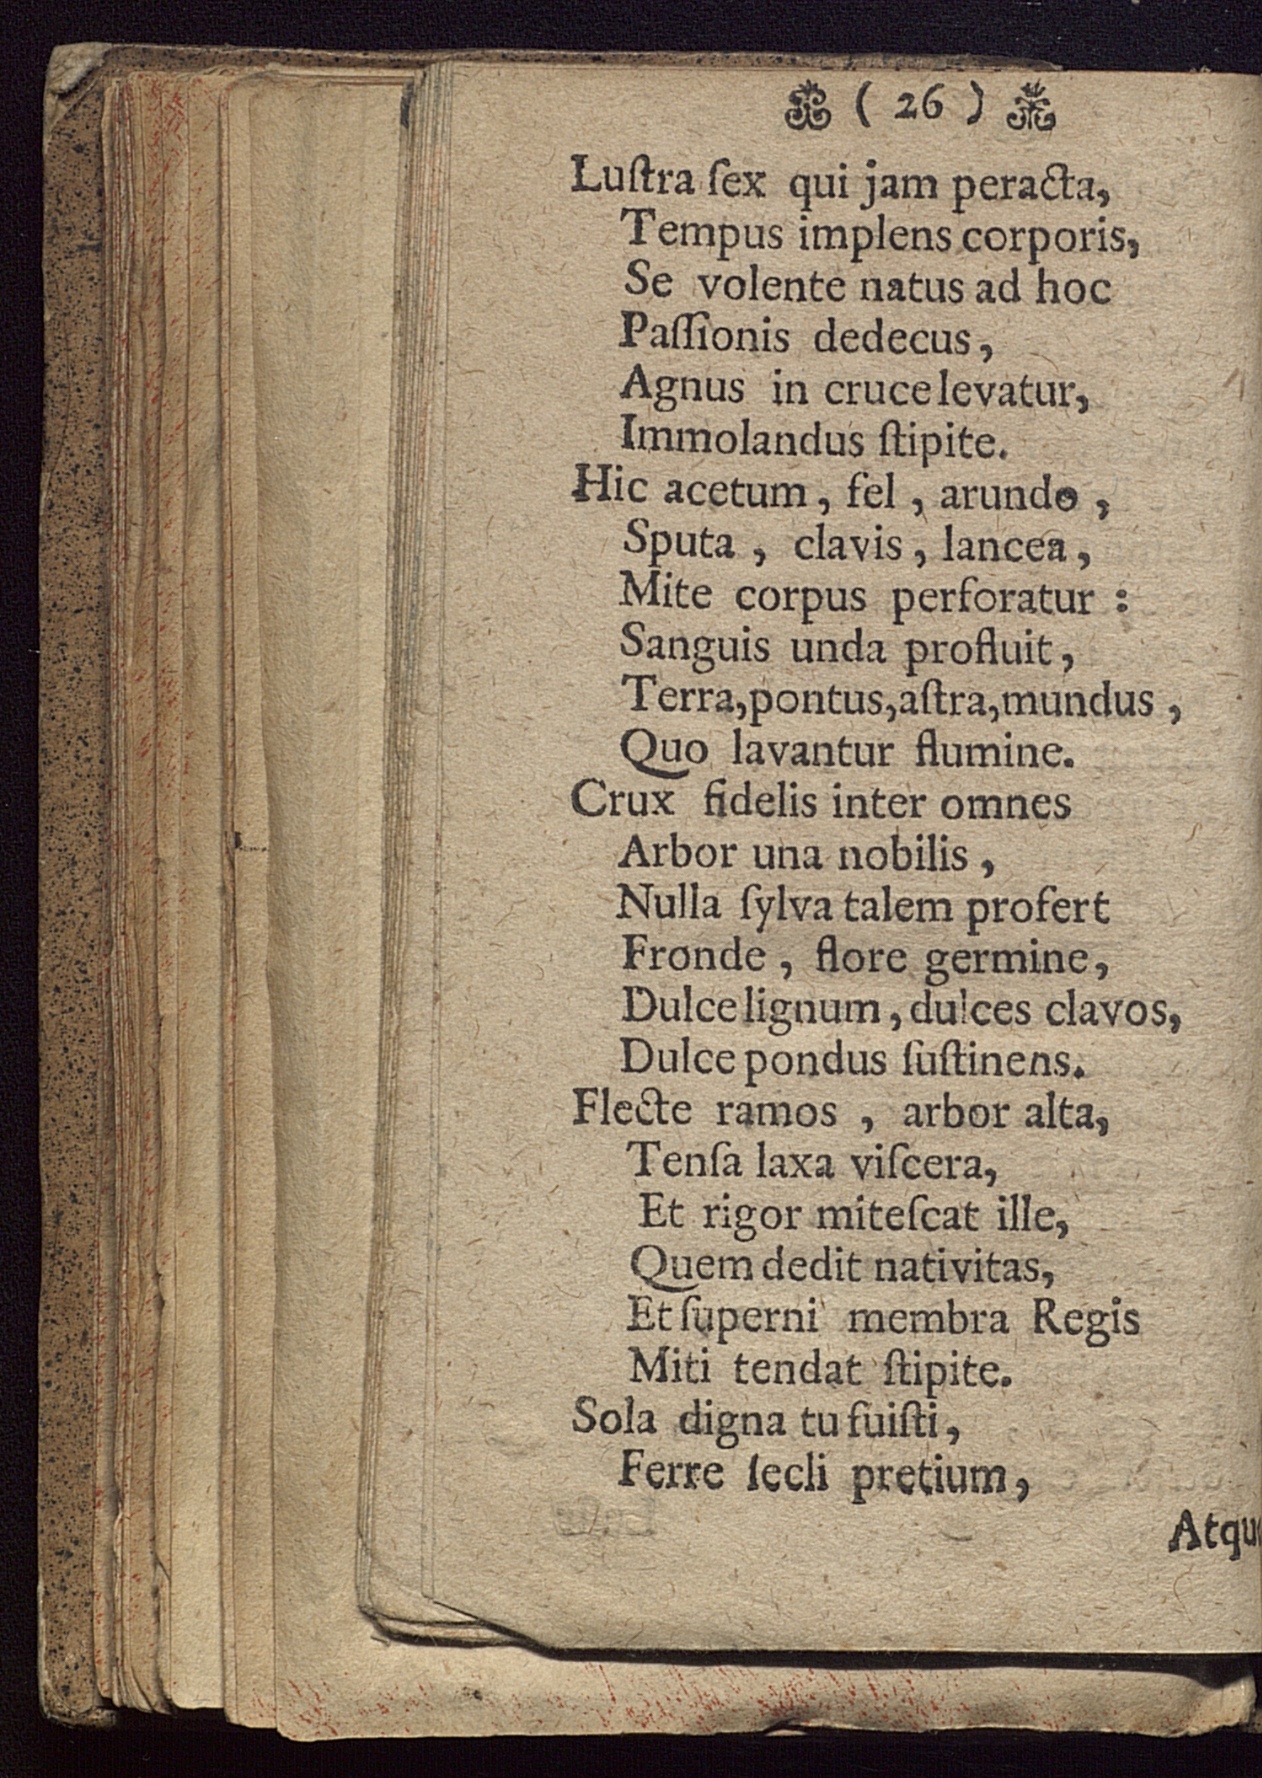 ( 26 )
Luſtra ſex qui jam peracta,
Tempus implens corporis,
Se volente natus ad hoc
Paſſionis dedecus,
Agnus in cruce levatur,
Immolandus ſtipite.
Hic acetum, fel, arundo,
Sputa, clavis, lancea,
Mite corpus perforatur :
Sanguis unda profluit,
Terra, pontus, aſtra, mundus,
Quo lavantur flumine.
Crux fidelis inter omnes
Arbor una nobilis,
Nulla ſylva talem profert
Fronde, flore germine,
Dulce lignum, dulces clavos,
Dulce pondus ſuſtinens.
Flecte ramos, arbor alta,
Tenſa laxa viſcera,
Et rigor miteſcat ille,
Quem dedit nativitas,
Et ſuperni membra Regis
Miti tendat ſtipite.
Sola digna tu fuiſti,
Ferre ſecli pretium,
Atqu